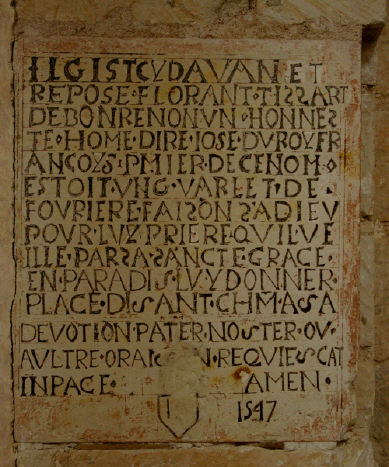 ILGISTCYDAVANET
REPOSE·FLORANT·TISSART
DEBONRENONVN·HONNES
TE·HOME·DIRE·IOSE·DVROY·FR
ANCOYS·PMIER·DECENOM·O
ESTOITVNG·VARLET·DE·
FOVRIERE·FAISONSADIEV
POVR·LVY·PRIEREQVILVE
ILLE·PARSA·SANCTEGRACE·
EN·PARADIS·LVYDONNER·
PLACE·DISANT·CHM·ASA
DEVOTION·PATER·NOSTER·OV·
AVLTRE·ORAISON·REQVIESCAT
INPACE· AMEN·
1547